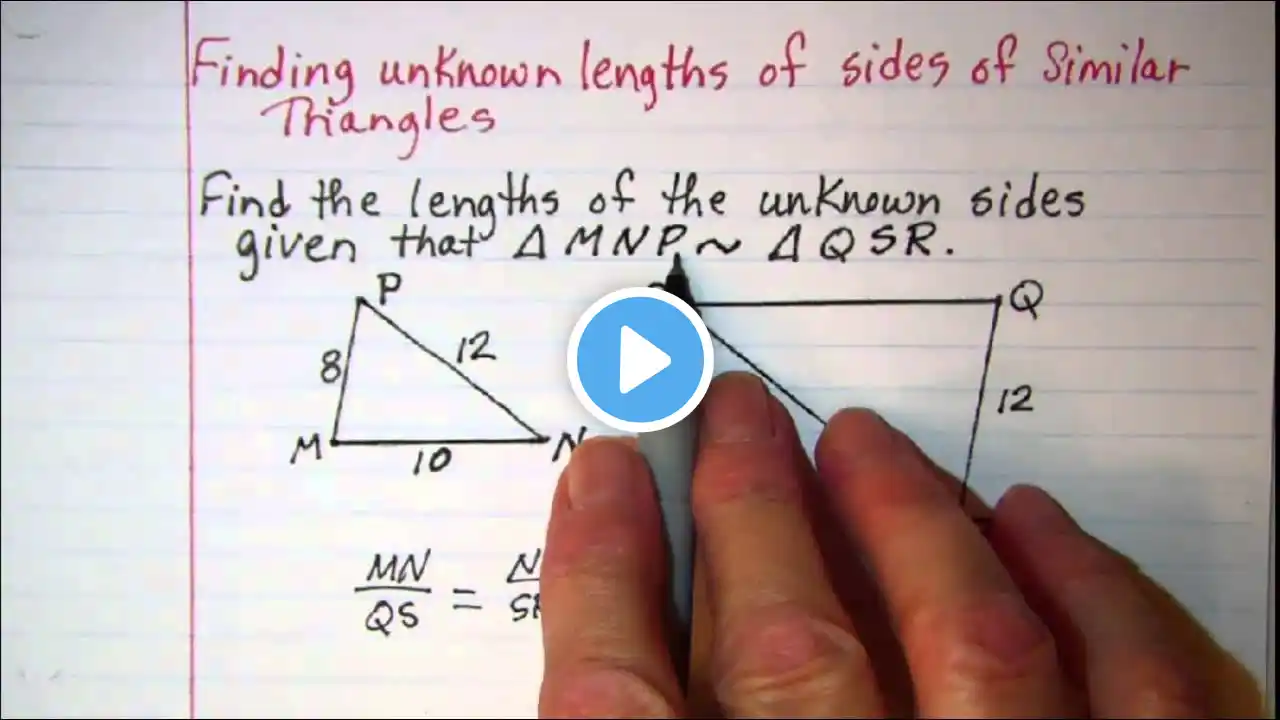 Finding unknown lengths of sides of Similar
Triangles
Find the lengths of the unknown sides
given that Δ MNP ~ Δ QSR.
P
Q
8
12
12
M
10
N
MN
QS
=
N
S